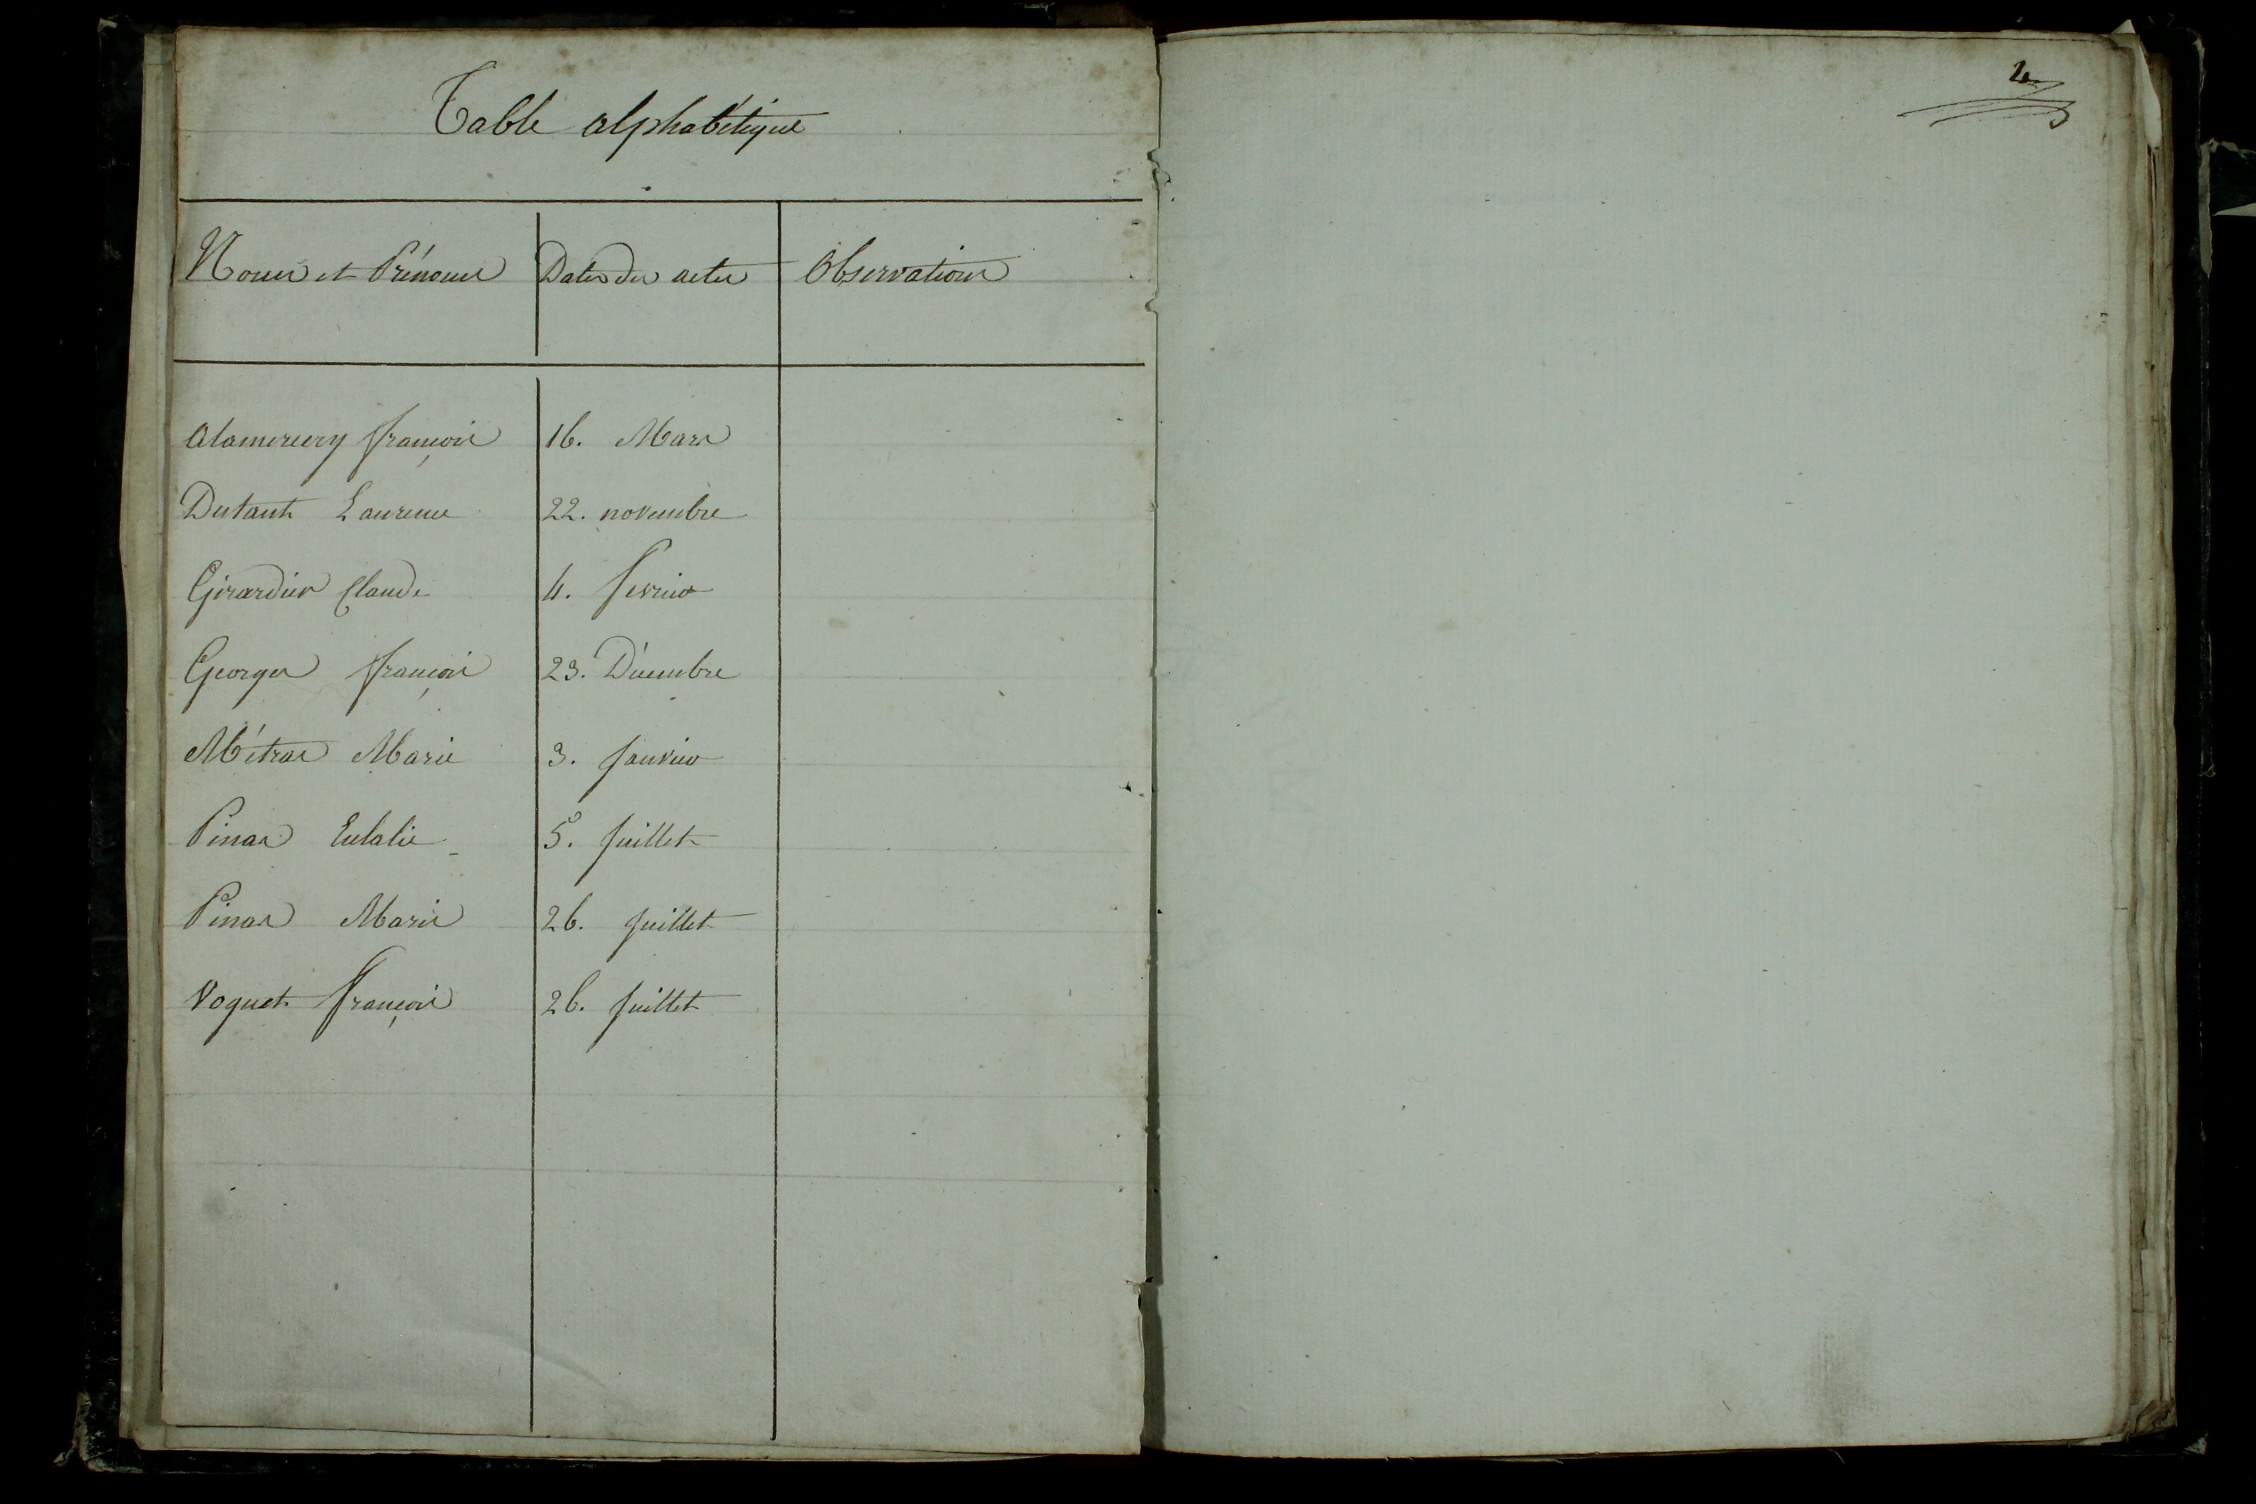 Table alphabétique
Noms et Prénoms Dates des actes Observations
Alamercery françois 16. Mars
Dutant Laurence 22. novembre
Girardier Claude 4. fevrier
Georges françois 23. Décembre
Métras Marie 3. janvier
Pinas Eulalie 5. juillet
Pinas Marie 26. juillet
Voguet françois 26. juillet